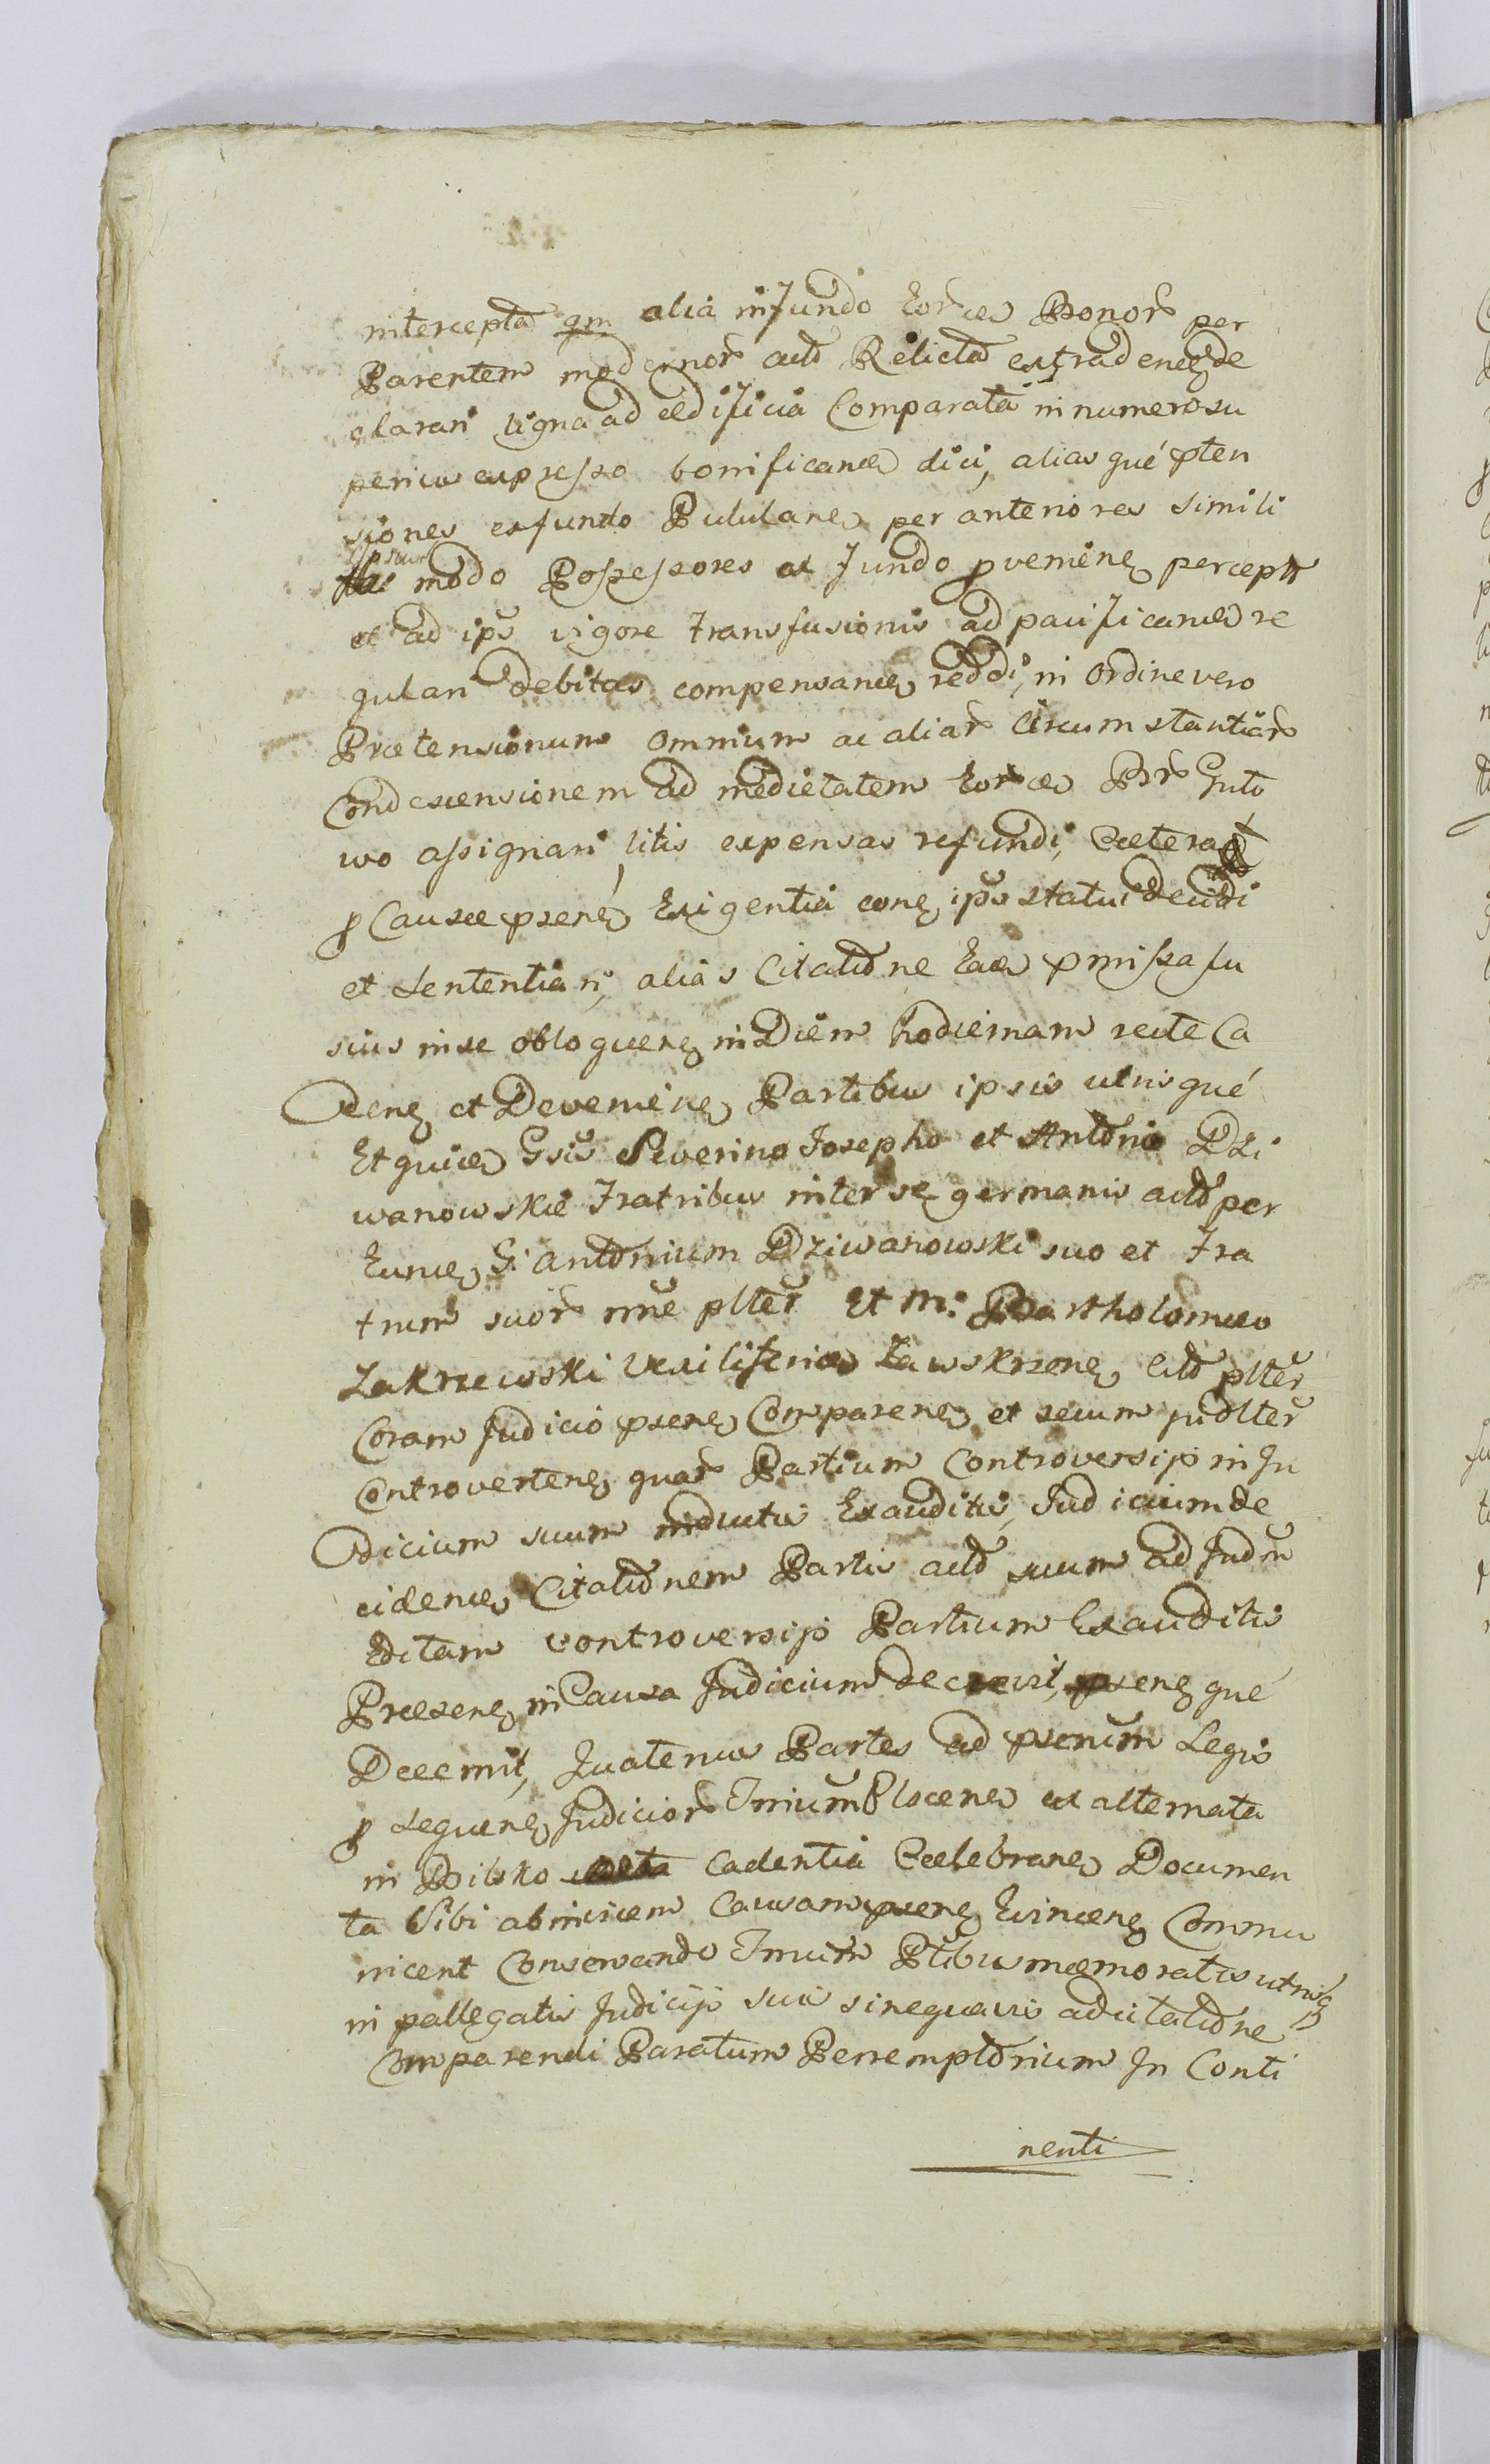 intercepta qm alia in fundo Eorce Bonor per
Parentem modernor actd Relicta extraden de
clarari ligna ad ædificia Comparata in numero su
perius expresso bonificanda dici, alias qué pten
siones ex fundo Pululane per anteriores simili
modo Possessores ex fundo pveniene percept
et ad ips vigore transfusionis ad pacificand re
gulari debitas compensane reddi, in ordine vero
Prætensionum omnium ac aliar Circumstantiar
Condescensionem ad medietatem Eorce Bnr Guto
wo assignari litis expensas refundi, Cætera
p Causæ psene Exigentia cone ips statui decidi
et Sententiari, alias Citatione Eace pmissa fu
sius in se obloquene in Diem hodiernam recte Ca
dene et Deveniene Partibus ipsis utrisqué
Et quide Gsis Severino Josepho et Antonio Dzi
wanowskie Fratribus inter se germanis actd per
Eunde G. Antonium Dziwanowski suo et Fra
trum suor nne plter Et M. Bartholomæo
Zakrzewski Vexilifero Zawskrzene Citd plter
Coram Judicio psene Comparene et secum judlter
Controvertene quar Partium Controversijs in Ju
dicium suum inductis Exauditis, Judicium de
cidende Citationem Partis actd suum ad Judm
Editam controversijs Partium Exauditis
Præsene in Causa Judicium decrevit, psene qué
Decernit, Quatenus Partes ad psenum Legis
p Sequene Judicior Tnium Plocene ex alternata
in Bilsko Cadentia Cælebrane Documen
ta Sibi ab invicem Causam psene Evincene Commu
nicent Conservando Tnum Ptibus mæmoratis utrisq
in pallegatis Judicijs suis sine quavis adcitatione
Comparendi Paratum Peremptorium In Conti
nenti